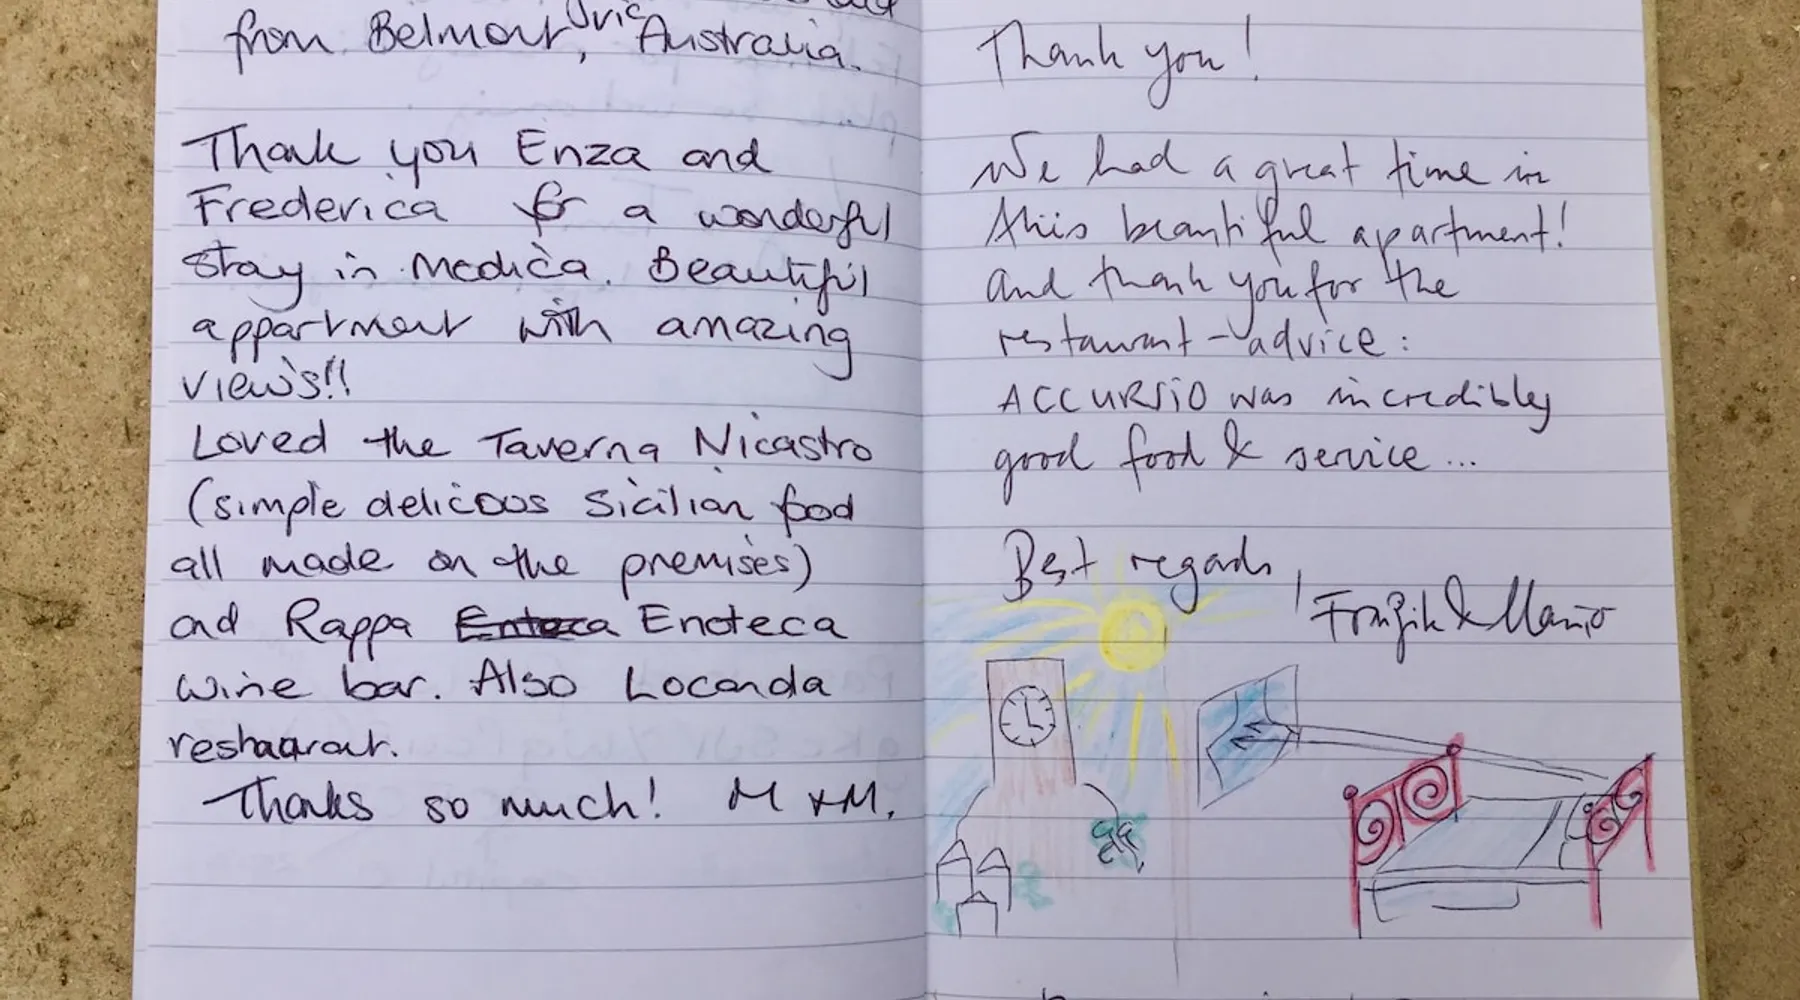 from Belmont, Vic Australia.
Thank you Enza and
Frederica for a wonderful
stay in Modica. Beautiful
appartment with amazing
views!!
Loved the Taverna Nicastro
(simple delicous Sicilian food
all made on the premises)
and Rappa Enoteca
wine bar. Also Locanda
restaurant.
Thanks so much! M + M.
Thank you!
We had a great time in
this beautiful apartment!
And thank you for the
restaurant-advice:
ACCURSIO was incredibly
good food & service...
Best regards,
&